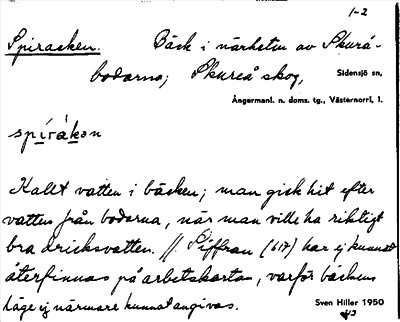 1-2
Spiracken. Bäck i närheten av Skurå-
bodarna; Skureå skog, Sidensjö sn,
Ångermanl. n. doms. tg., Västernorrl. l.
spírákən
Kallt vatten i bäcken; man gick hit efter
vatten från bodarna, när man ville ha riktigt
bra dricksvatten. // Siffran (617) har ej kunnat
återfinnas på arbetskartan, varför bäckens
läge ej närmare kunnat angivas. Sven Hiller 1950